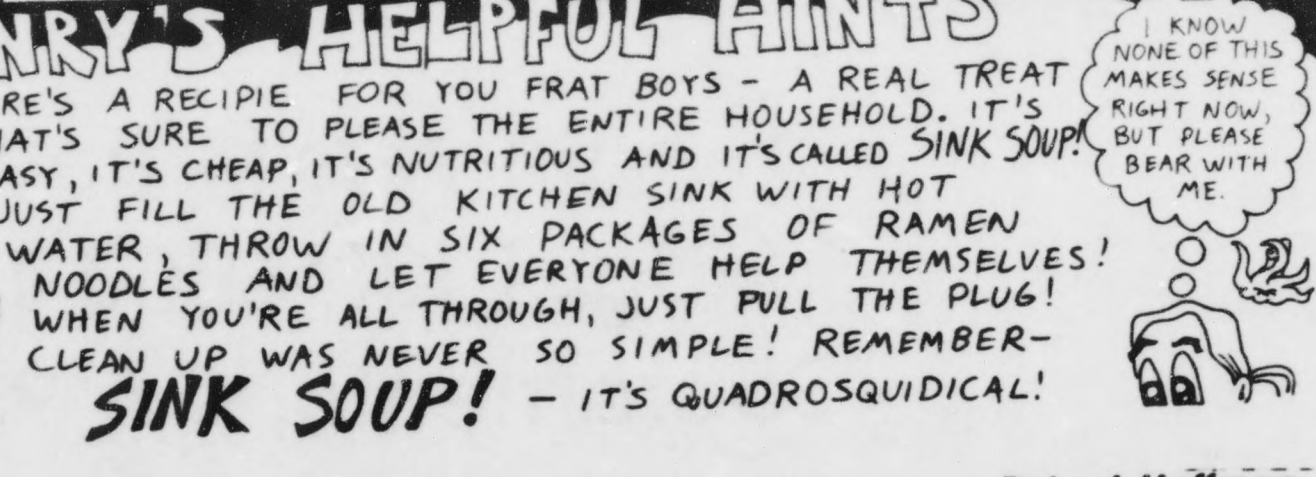 NRY'S HELPFUL HINTS
RE'S A RECIPIE FOR YOU FRAT BOYS - A REAL TREAT
HAT'S SURE TO PLEASE THE ENTIRE HOUSEHOLD. IT'S
ASY, IT'S CHEAP, IT'S NUTRITIOUS AND IT'S CALLED SINK SOUP!
JUST FILL THE OLD KITCHEN SINK WITH HOT
WATER, THROW IN SIX PACKAGES OF RAMEN
NOODLES AND LET EVERYONE HELP THEMSELVES!
WHEN YOU'RE ALL THROUGH, JUST PULL THE PLUG!
CLEAN UP WAS NEVER SO SIMPLE! REMEMBER-
SINK SOUP! - IT'S QUADROSQUIDICAL!
I KNOW
NONE OF THIS
MAKES SENSE
RIGHT NOW,
BUT PLEASE
BEAR WITH
ME.